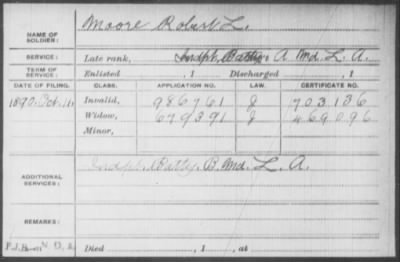 NAME OF SOLDIER: Moore Robert L.
SERVICE: Late rank, Indpt. Batty. A Md. L. A.
TERM OF SERVICE: Enlisted , 1 Discharged , 1
DATE OF FILING. CLASS. APPLICATION NO. LAW. CERTIFICATE NO.
1890, Oct. 11. Invalid, 986761 J 703136
Widow, 679391 J 469096
Minor,
ADDITIONAL SERVICES: Indpt. Batty. B. Md. L. A.
REMARKS:
Died , 1 , at